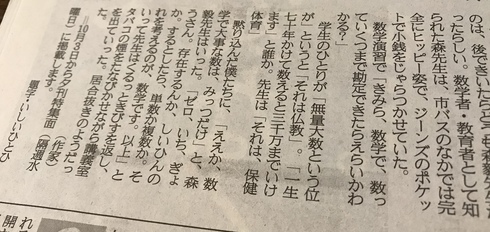 のは、後できいたらどうも森毅先生だ
ったらしい。数学者・教育者として知
られた森先生は、市バスのなかでは完
全にヒッピー姿で、ジーンズのポケッ
トで小銭をじゃらつかせていた。
数学演習で「きみら、数学で、数っ
ていくつまで勘定できたらえらいかわ
かる?」
学生のひとりが「無量大数という位
が」というと「それは仏教」。「一生
七十年かけて数えると三千万までいけ
ます」と誰か。先生は「それは、保健
体育」
黙り込んだ僕たちに、「ええか、数
学で大事な数は、みっつだけ」と、森
毅先生はいった。「ゼロ、いち、ぎょ
うさん。存在するんか、しいひんの
か。するとしたら、単数か複数か。そ
れを考えるのが、数学です。以上」と
いって先生はくるっときびすを返し、
タバコの煙をたなびかせながら講義室
を出ていった。居合抜きのようだっ
た。　（作家）
＝10月3日から夕刊特集面（隔週水
曜日）に掲載します。
題字・いしいひとひ